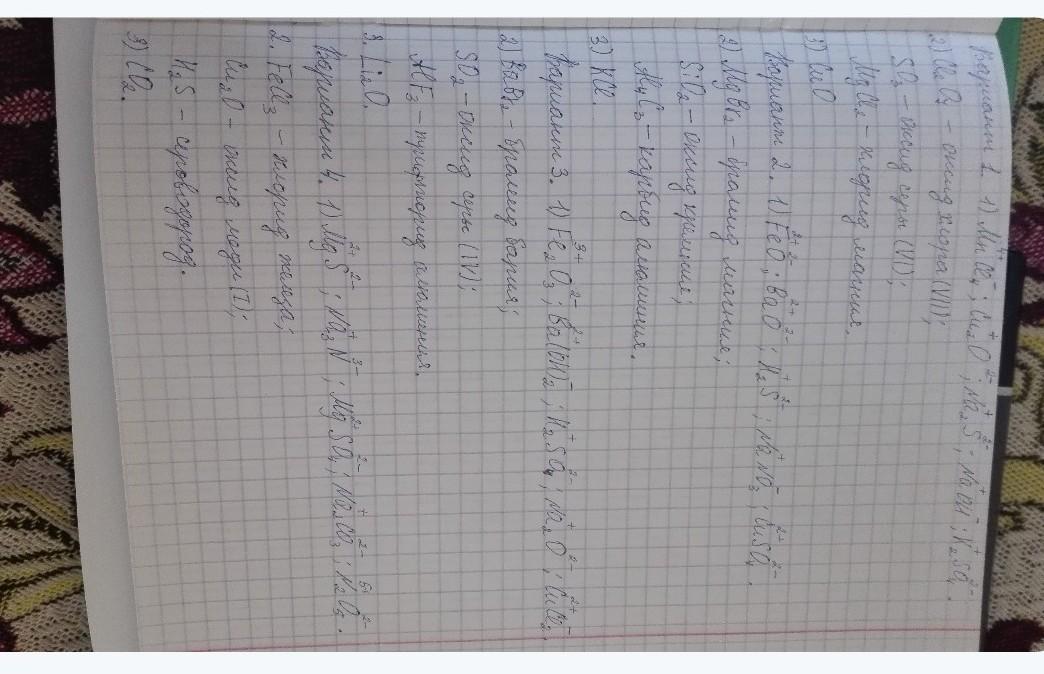 Вариант 1. 1) Mn⁴⁺Cl₄⁻; Cu₂⁺O²⁻; Na₂⁺S²⁻; Na⁺OH⁻; K₂⁺SO₄²⁻.
2) Cl₂O₇ – оксид хлора (VII);
SO₃ – оксид серы (VI);
MgCl₂ – хлорид магния.
3) CuO
Вариант 2. 1) Fe²⁺O²⁻; Ba²⁺O²⁻; H₂⁺S²⁻; Na⁺NO₃⁻; Cu²⁺SO₄²⁻.
2) MgBr₂ – бромид магния;
SiO₂ – оксид кремния;
Al₄C₃ – карбид алюминия.
3) KCl.
Вариант 3. 1) Fe₂³⁺O₃²⁻; Ba²⁺(OH)₂⁻; K₂⁺SO₄²⁻; Na₂⁺O²⁻; Cu²⁺Cl₂⁻.
2) BaBr₂ – бромид бария;
SO₂ – оксид серы (IV);
AlF₃ – трифторид алюминия.
3. Li₂O.
Вариант 4. 1) Mg²⁺S²⁻; Na₃⁺N³⁻; Mg²⁺SO₄²⁻; Na₂⁺CO₃²⁻; N₂⁵⁺O₅²⁻.
2. FeCl₃ – хлорид железа;
Cu₂O – оксид меди (I);
H₂S – сероводород.
3) CO₂.